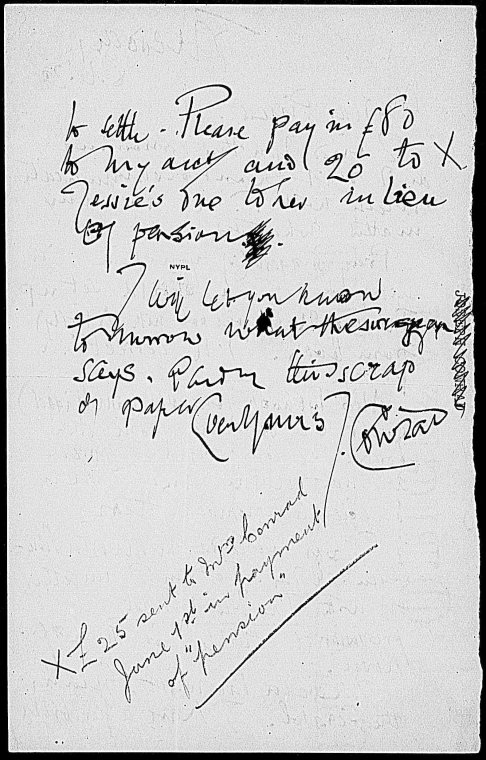 to settle - Please pay in £80
to my acct and 25 to X
Jessie's due to her in lieu
of pension.
NYPL
I will let you know
to morrow what the surgeon
says. Pardon this scrap
of paper
Ever Yours
J. Conrad
X £25 sent to Mrs Conrad
June 1st in payment
of "pension"